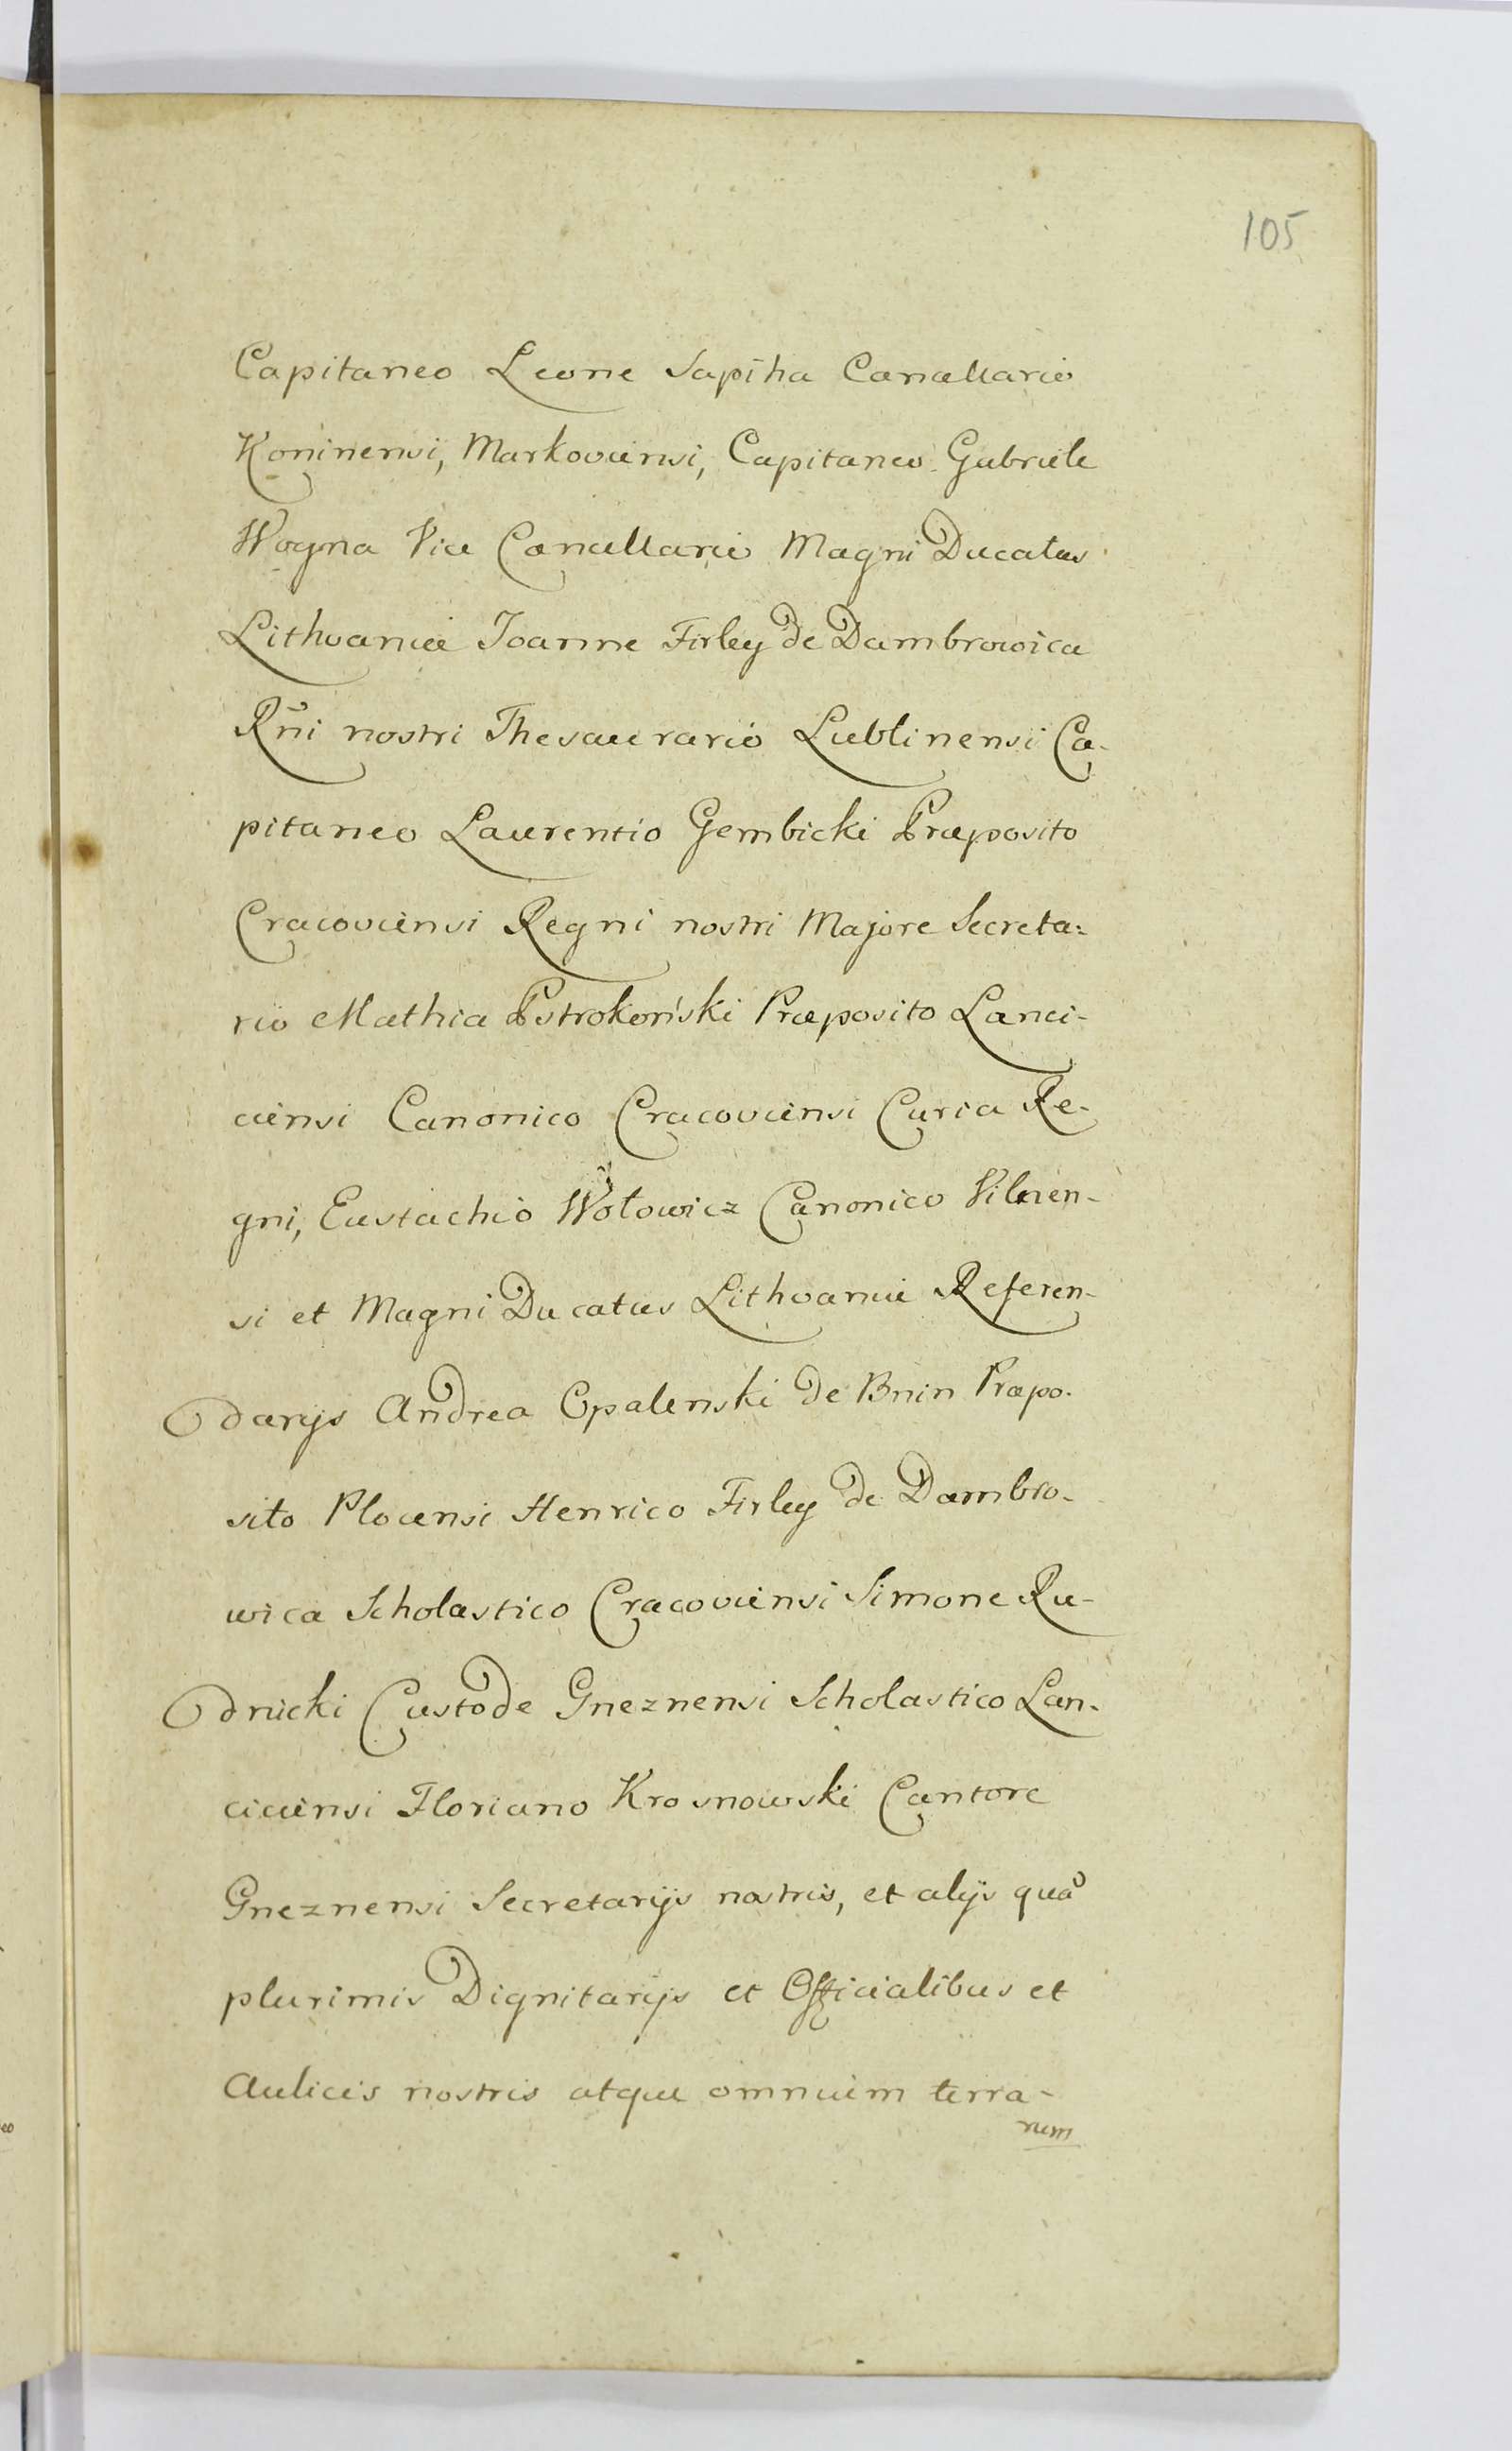 105
Capitaneo Leone Sapiha Cancellario
Koninensi, Markoviensi, Capitaneo Gabriele
Woyna Vice Cancellario Magni Ducatus
Lithvaniæ Joanne Firley de Dambrowica
Rñi nostri Thesaurario Lublinensi Ca-
pitaneo Laurentio Gembicki Præposito
Cracoviensi Regni nostri Majore Secreta:
rio Mathia Pstrokoński Præposito Lanci-
ciensi Canonico Cracoviensi Curia Re-
gni, Eustachio Wołowicz Canonico Vilnen-
si et Magni Ducatus Lithvaniæ Referen-
darijs Andrea Opalenski de Bnin Præpo-
sito Plocensi Henrico Firley de Dambro-
wica Scholastico Cracoviensi Simone Ru-
dnicki Custode Gneznensi Scholastico Lan-
ciciensi Floriano Krosnowski Cantore
Gneznensi Secretarijs nostris, et alijs quã
plurimis Dignitarijs et Officialibus et
Aulicis nostris atque omnium terra-
rum